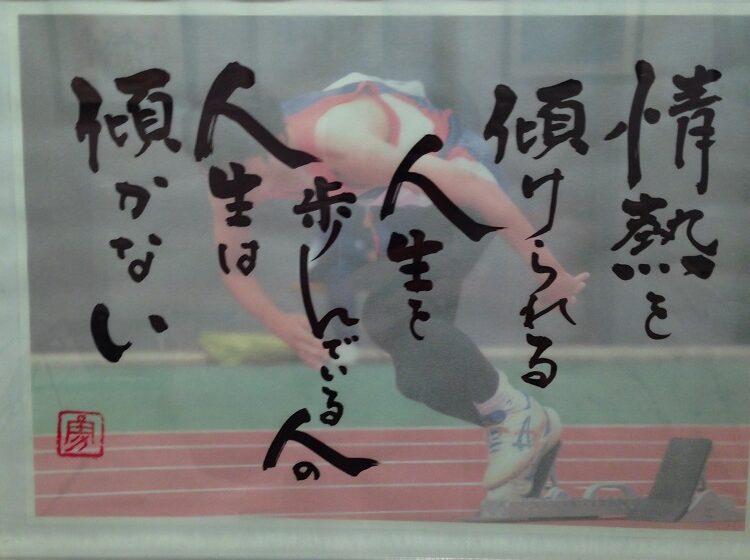 情熱を
傾けられる
人生を
歩んでいる人の
人生は
傾かない